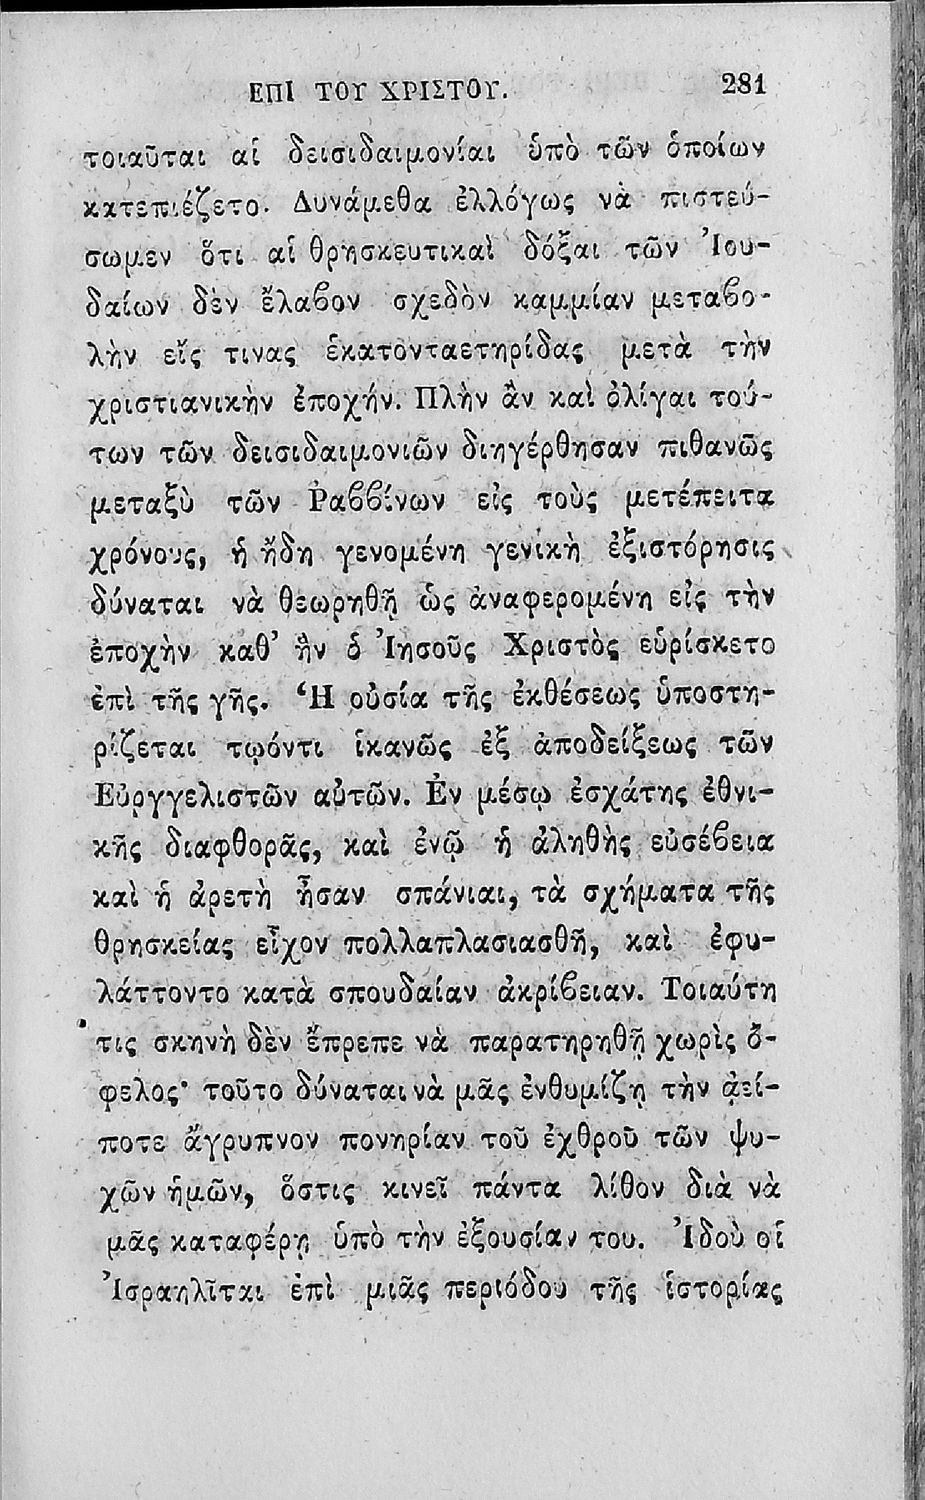 ΕΠΙ ΤΟΥ ΧΡΙΣΤΟΥ. 281
τοιαῦται αἱ δεισιδαιμονίαι ὑπὸ τῶν ὁποίων
κατεπιέζετο. Δυνάμεθα ἐλλόγως νὰ πιστεύ-
σωμεν ὅτι αἱ θρησκευτικαὶ δόξαι τῶν Ἰου-
δαίων δὲν ἔλαβον σχεδὸν καμμίαν μεταβο-
λὴν εἴς τινας ἑκατονταετηρίδας μετὰ τὴν
χριστιανικὴν ἐποχήν. Πλὴν ἂν καὶ ὀλίγαι τού-
των τῶν δεισιδαιμονιῶν διηγέρθησαν πιθανῶς
μεταξὺ τῶν Ῥαββίνων εἰς τοὺς μετέπειτα
χρόνους, ἡ ἤδη γενομένη γενικὴ ἐξιστόρησις
δύναται νὰ θεωρηθῇ ὡς ἀναφερομένη εἰς τὴν
ἐποχὴν καθ’ ἣν ὁ Ἰησοῦς Χριστὸς εὑρίσκετο
ἐπὶ τῆς γῆς. Ἡ οὐσία τῆς ἐκθέσεως ὑποστη-
ρίζεται τῳόντι ἱκανῶς ἐξ ἀποδείξεως τῶν
Εὐργγελιστῶν αὐτῶν. Ἐν μέσῳ ἐσχάτης ἐθνι-
κῆς διαφθορᾶς, καὶ ἐνῷ ἡ ἀληθὴς εὐσέβεια
καὶ ἡ ἀρετὴ ἦσαν σπάνιαι, τὰ σχήματα τῆς
θρησκείας εἶχον πολλαπλασιασθῆ, καὶ ἐφυ-
λάττοντο κατὰ σπουδαίαν ἀκρίβειαν. Τοιαύτη
τις σκηνὴ δὲν ἔπρεπε νὰ παρατηρηθῇ χωρὶς ὄ-
φελος· τοῦτο δύναται νὰ μᾶς ἐνθυμίζῃ τὴν ἀεί-
ποτε ἄγρυπνον πονηρίαν τοῦ ἐχθροῦ τῶν ψυ-
χῶν ἡμῶν, ὅστις κινεῖ πάντα λίθον διὰ νὰ
μᾶς καταφέρῃ ὑπὸ τὴν ἐξουσίαν του. Ἰδοὺ οἱ
Ἰσραηλῖται ἐπὶ μιᾶς περιόδου τῆς ἱστορίας